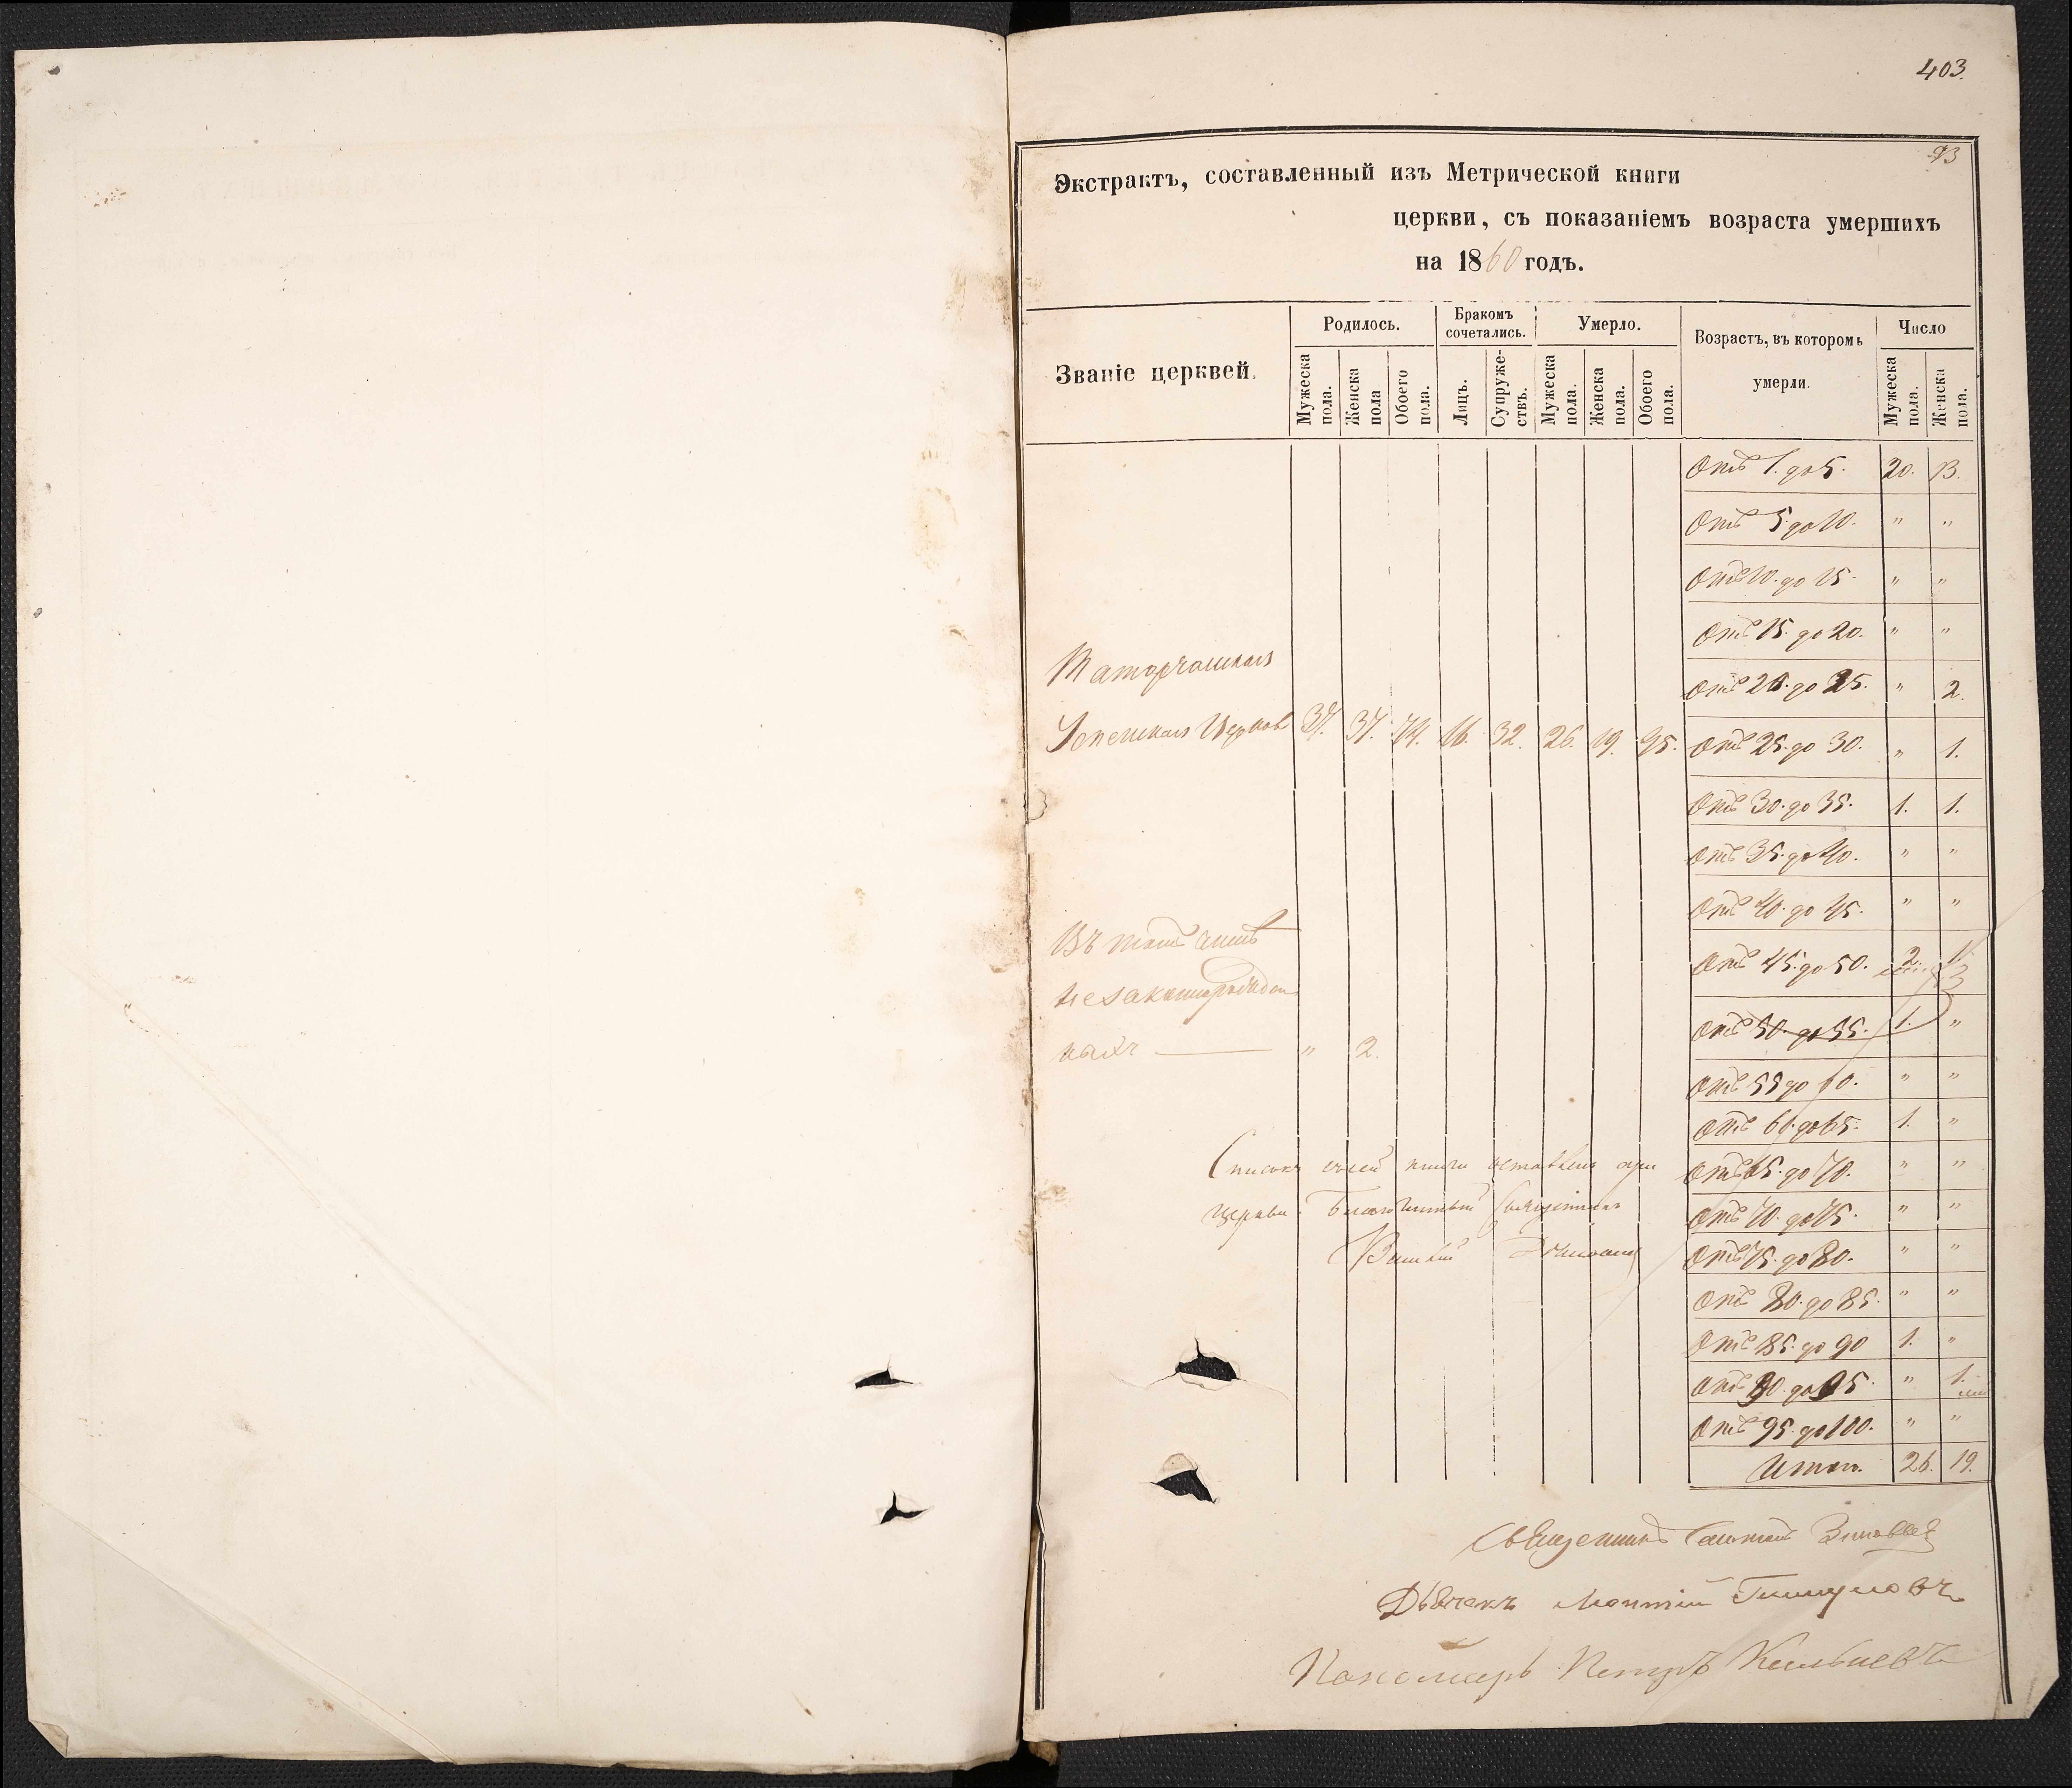 403.
93
Экстрактъ, составленный изъ Метрической книги
церкви, съ показаніемъ возраста умершихъ
на 1860 годъ.
Званіе церквей. Родилось. Бракомъ сочетались. Умерло. Возрастъ, въ которомъ умерли. Число
Мужеска пола. Женска пола Обоего пола. Лицъ. Супружествъ. Мужеска пола. Женска пола. Обоего пола. Мужеска пола. Женска пола.
Отъ 1. до 5. 20. 13.
Отъ 5. до 10. " "
Отъ 10. до 15. " "
Отъ 15. до 20. " "
Отъ 20. до 25. " 2.
Успенская Церковь 37. 37. 74. 16. 32. 26. 19. 45. Отъ 25. до 30. " 1.
Отъ 30. до 35. 1. 1.
Отъ 35. до 40. " "
Отъ 40. до 45. " "
Въ томъ числѣ
Отъ 45. до 50. 2. 1.
незаконнорожден
Отъ 50. до 55. 1. "
ныхъ " 2.
Отъ 55 до 60. " "
Отъ 60. до 65. 1. "
Списокъ сей книги оставленъ при
Отъ 65. до 70. " "
церкви. Благочинный Священникъ
Отъ 70. до 75. " "
Отъ 75. до 80. " "
Отъ 80. до 85. " "
Отъ 85. до 90 1. "
Отъ 90. до 95. " 1.
Отъ 95. до 100. " "
Итого. 26. 19.
Священникъ
Дьячекъ
Пономарь Петръ